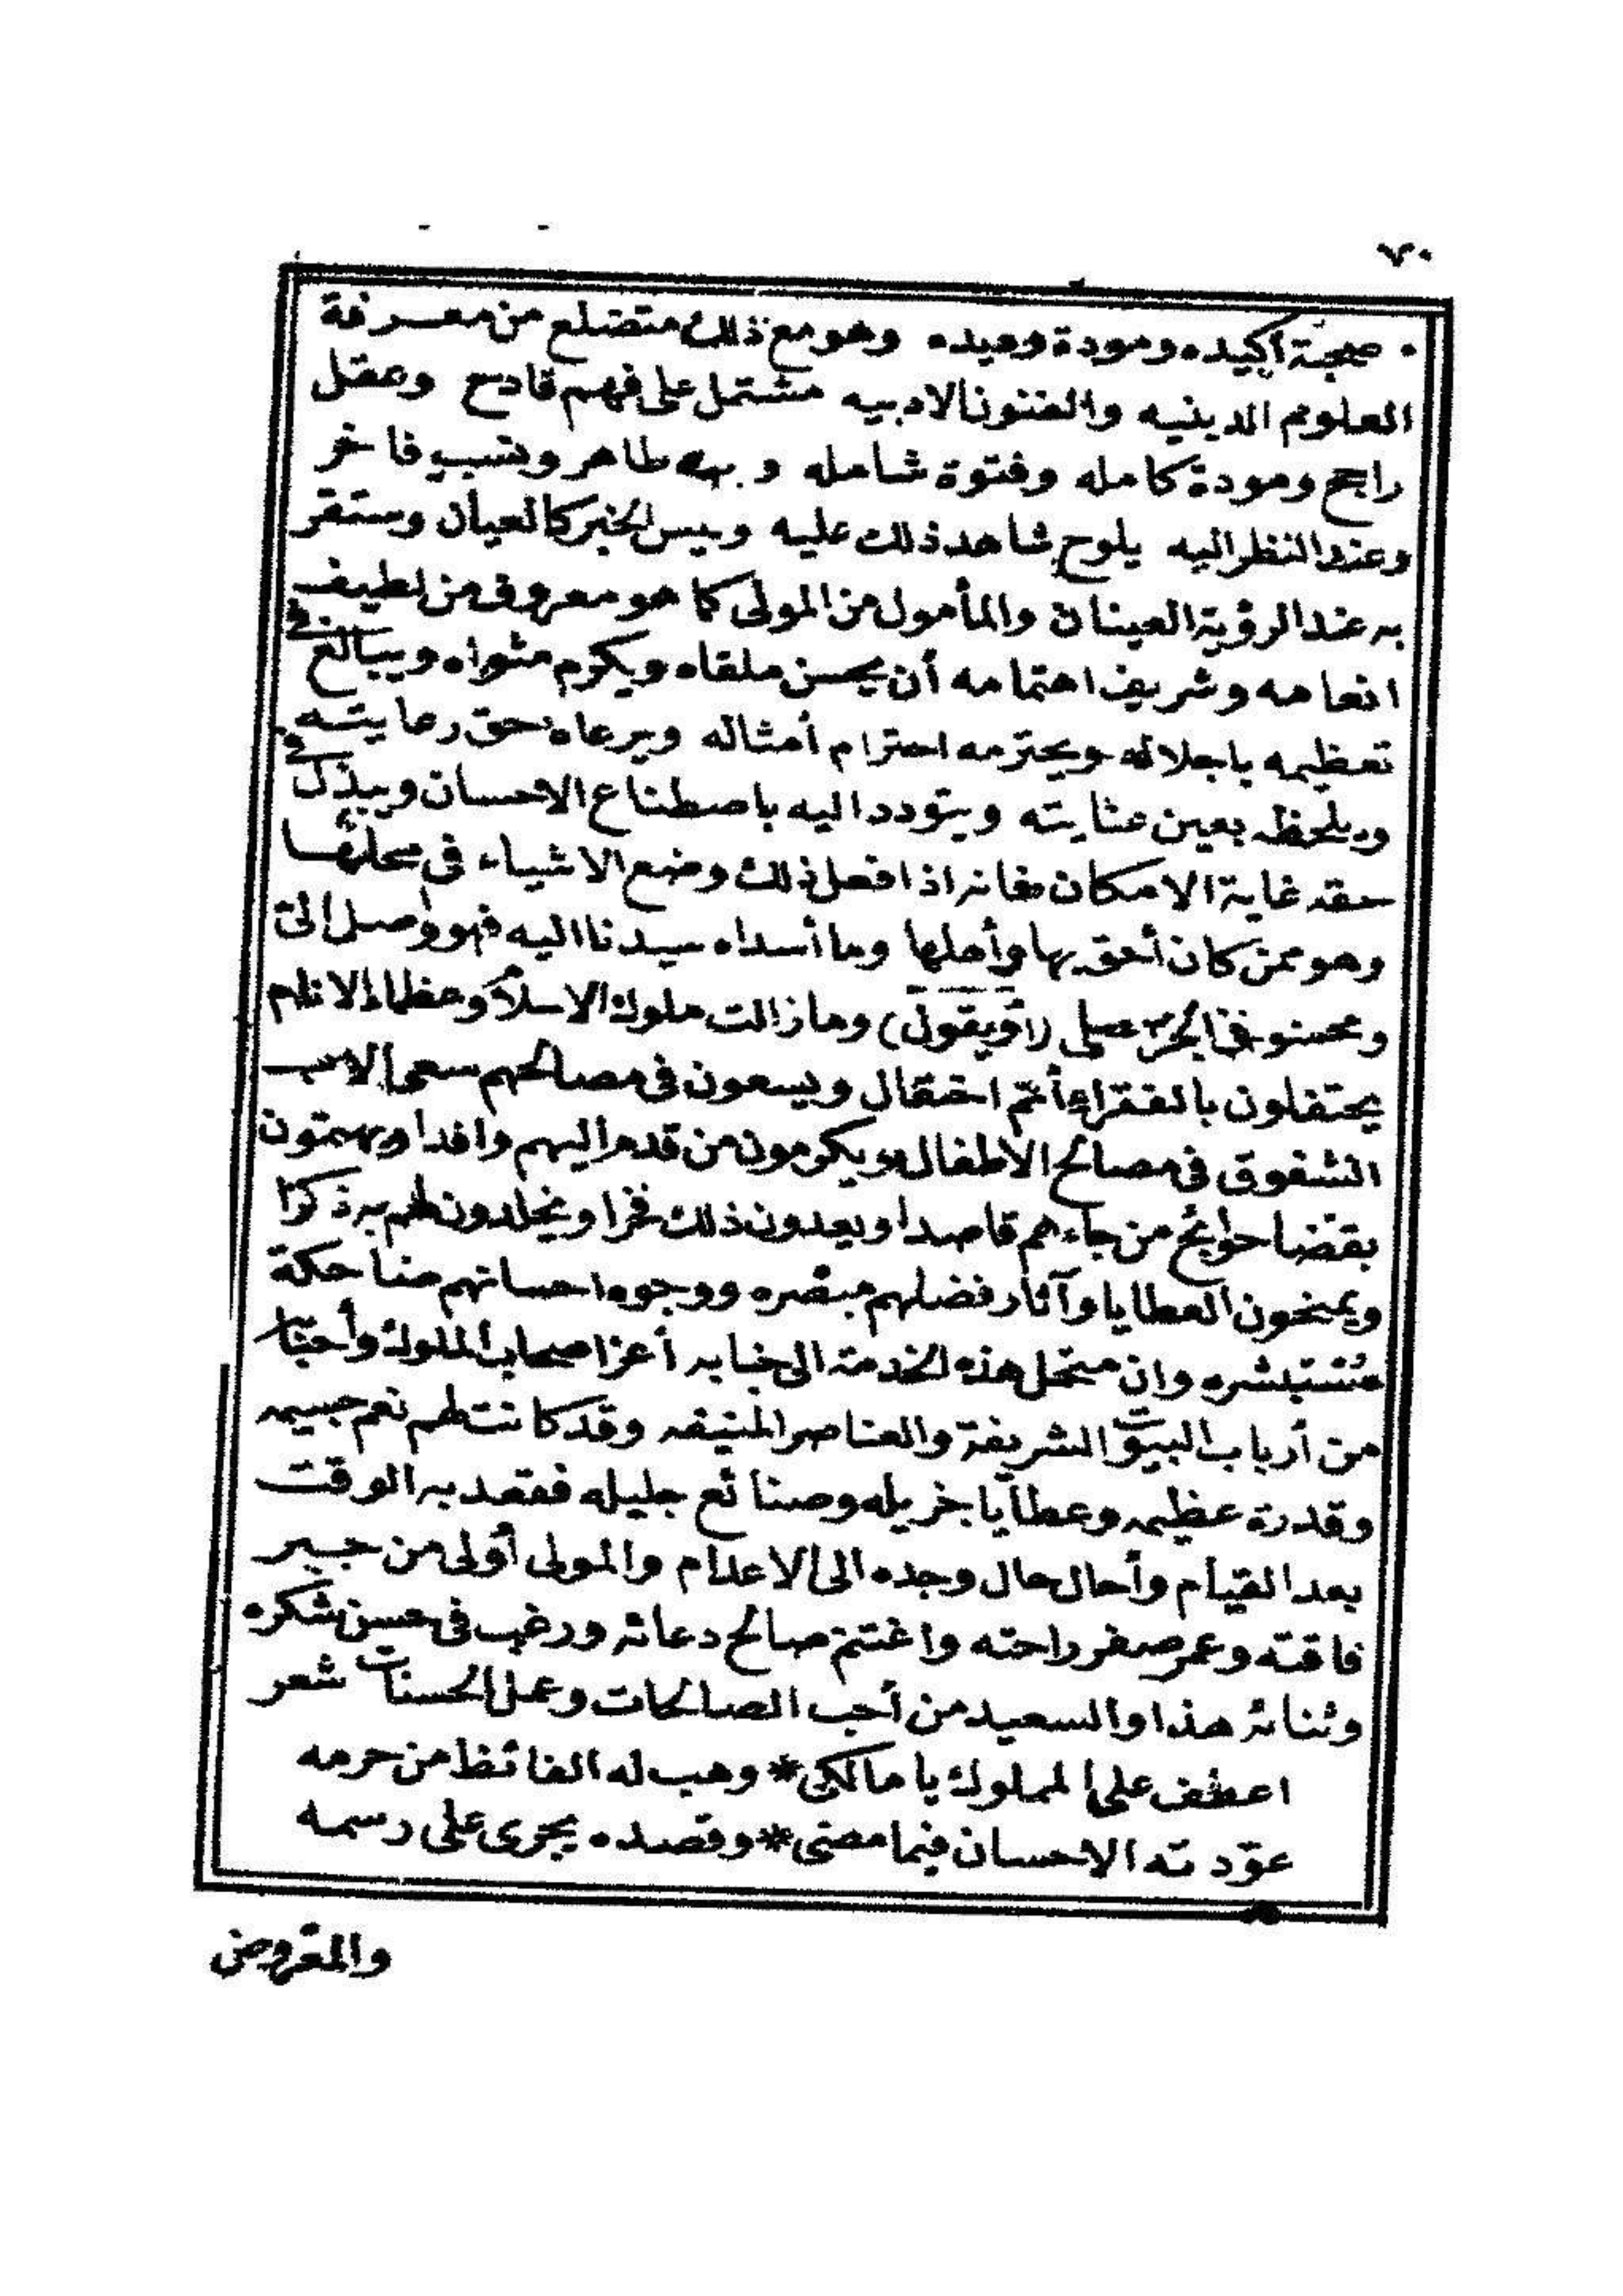 ٧٠
صحبة اكيده ومودة وحيده وهو مع ذلك متضلع من معرفة
العلوم الدينيه والفنون الادبيه مشتمل على فهم قادح وعقل
راجح ومودة كامله وفتوة شامله و طاهر ونسب فاخر
وعند النظر اليه يلوح شاهد ذلك عليه وليس الخبر كالعيان وستقر
به عند الرؤية العينان والمأمول من المولى كما هو معروف من لطيف
انعامه وشريف اهتمامه أن يحسن ملقاه ويكرم مثواه ويبالغ في
تعظيمه باجلاله ويحترمه احترام أمثاله ويرعاه حق رعايته
ويلحظه بعين عنايته ويتودد اليه باصطناع الاحسان ويبذل في
حقه غاية الامكان فانه اذا فعل ذلك وضع الاشياء في محلها
وهو ممن كان أحق بها وأهلها وما أسداه سيدنا اليه فهو واصل الى
ومحسنو في الجز على (أو يقول) وما زالت ملوك الاسلام وعظماء الانام
يحتفلون بالفقراء أتم احتفال ويسعون في مصالحهم سعى الاب
الشفوق في مصالح الاطفال ويكرمون من قدم اليهم وافدا ويهتمون
بقضا حوائج من جاءهم قاصدا ويعدون ذلك فخرا ويخلدون لهم به ذكرا
ويمنحون العطايا وآثار فضلهم مبصره ووجوه احسانهم ضاحكة
مستبشره وان متحمل هذه الخدمة الى جنابه أعز اصحاب الملوك وأحبتا
من أرباب البيوت الشريفة والعناصر المنيفه وقد كانت لهم نعم جسيمه
وقدرة عظيمه وعطايا جزيله وصنائع جليله فقعد به الوقت
بعد القيام وأحال حال وجده الى الاعدام والمولى أولى من جبر
فاقته وعمر صفر راحته واغتنم صالح دعائه ورغب في حسن شكره
وثنائه هذا والسعيد من أحب الصالحات وعمل الحسنات شعر
اعطف على المملوك يا مالكى * وهب له الفائظ من حرمه
عوّدته الاحسان فيما مضى * وقصده يجرى على رسمه
والمفروض